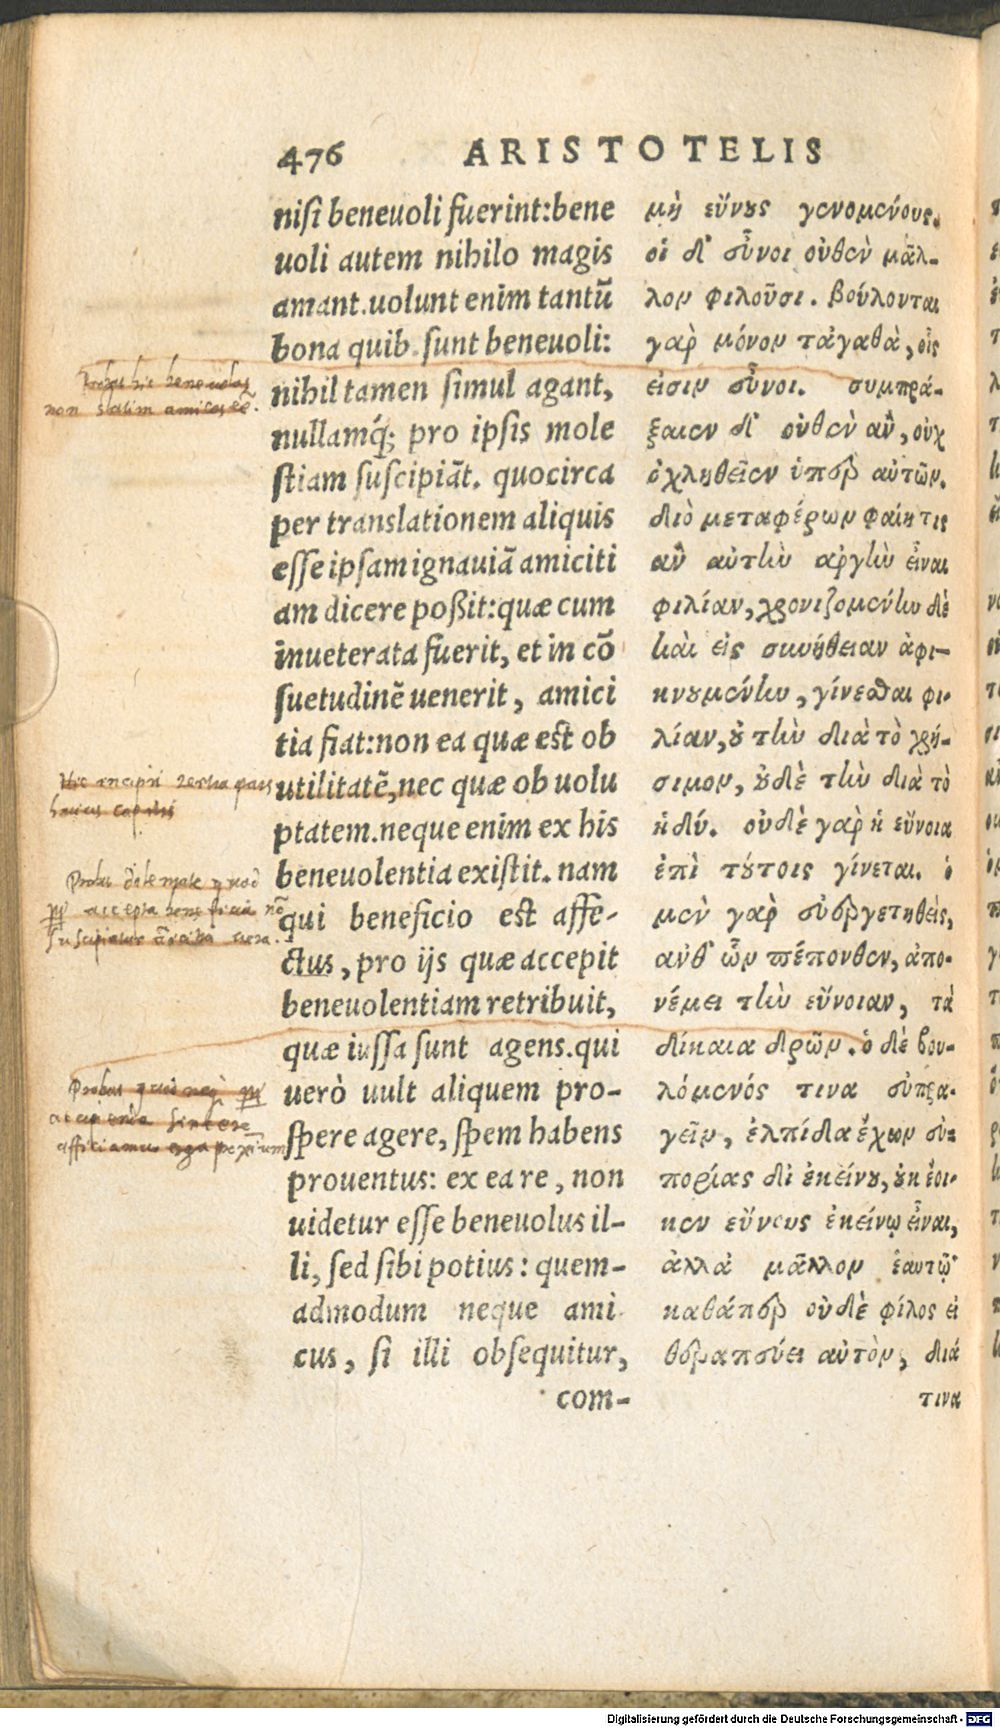 476 ARISTOTELIS
nisi beneuoli fuerint:bene
uoli autem nihilo magis
amant.uolunt enim tantũ
bona quib. sunt beneuoli:
nihil tamen simul agant,
nullamq́; pro ipsis mole
stiam suscipiãt. quocirca
per translationem aliquis
esse ipsam ignauiã amiciti
am dicere poßit:quæ cum
inueterata fuerit, et in cõ
suetudinẽ uenerit, amici
tia fiat:non ea quæ est ob
utilitatẽ,nec quæ ob uolu
ptatem.neque enim ex his
beneuolentia existit. nam
qui beneficio est affe-
ctus, pro ijs quæ accepit
beneuolentiam retribuit,
quæ iussa sunt agens.qui
uerò uult aliquem pro-
spere agere, spem habens
prouentus: ex ea re, non
uidetur esse beneuolus il-
li, sed sibi potius: quem-
admodum neque ami
cus, si illi obsequitur,
com-
μὴ εὔνȣς γενομένους.
οἱ δ' εὖνοι οὐθὲν μᾶλ-
λον φιλοῦσι. βούλονται
γαρ μόνον τἀγαθὰ, οἷς
εἰσιν εὖνοι. συμπρά-
ξαιεν δ' οὐθὲν ἂν, οὐχ
ὀχληθεῖεν ὑπὲρ αὐτῶν.
διὸ μεταφέρων φαίη τις
ἂν αὐτὴν ἀργὴν εἶναι
φιλίαν, χρονιζομένην δὲ
καὶ εἰς συνήθειαν ἀφι-
κνȣμένην, γίνεσθαι φι-
λίαν, ȣ τὴν διὰ τὸ χρή-
σιμον, ȣδὲ τὴν διὰ τὸ
ἡδύ. οὐδὲ γαρ ἡ εὔνοια
ἐπὶ τȣτοις γίνεται. ὁ
μὲν γαρ εὐεργετηθεὶς,
ἀνθ' ὧν πέπονθεν, ἀπο-
νέμει τὴν εὔνοιαν, τὰ
δίκαια δρῶν. ὁ δὲ βου-
λόμενός τινα εὐπρα-
γεῖν, ἐλπίδα ἔχων εὐ-
πορίας δι' ἐκείνȣ, ȣκ ἔοι-
κεν εὔνους ἐκείνῳ εἶναι,
ἀλλὰ μᾶλλον ἑαυτῷ
καθάπερ οὐδὲ φίλος εἰ
θεραπεύει αὐτὸν, διά
τινα
Probat hic beneuolos
non statim amicos eẽ.
Hic incipit tertia pars
huius capitis
Digitalisierung gefördert durch die Deutsche Forschungsgemeinschaft - DFG